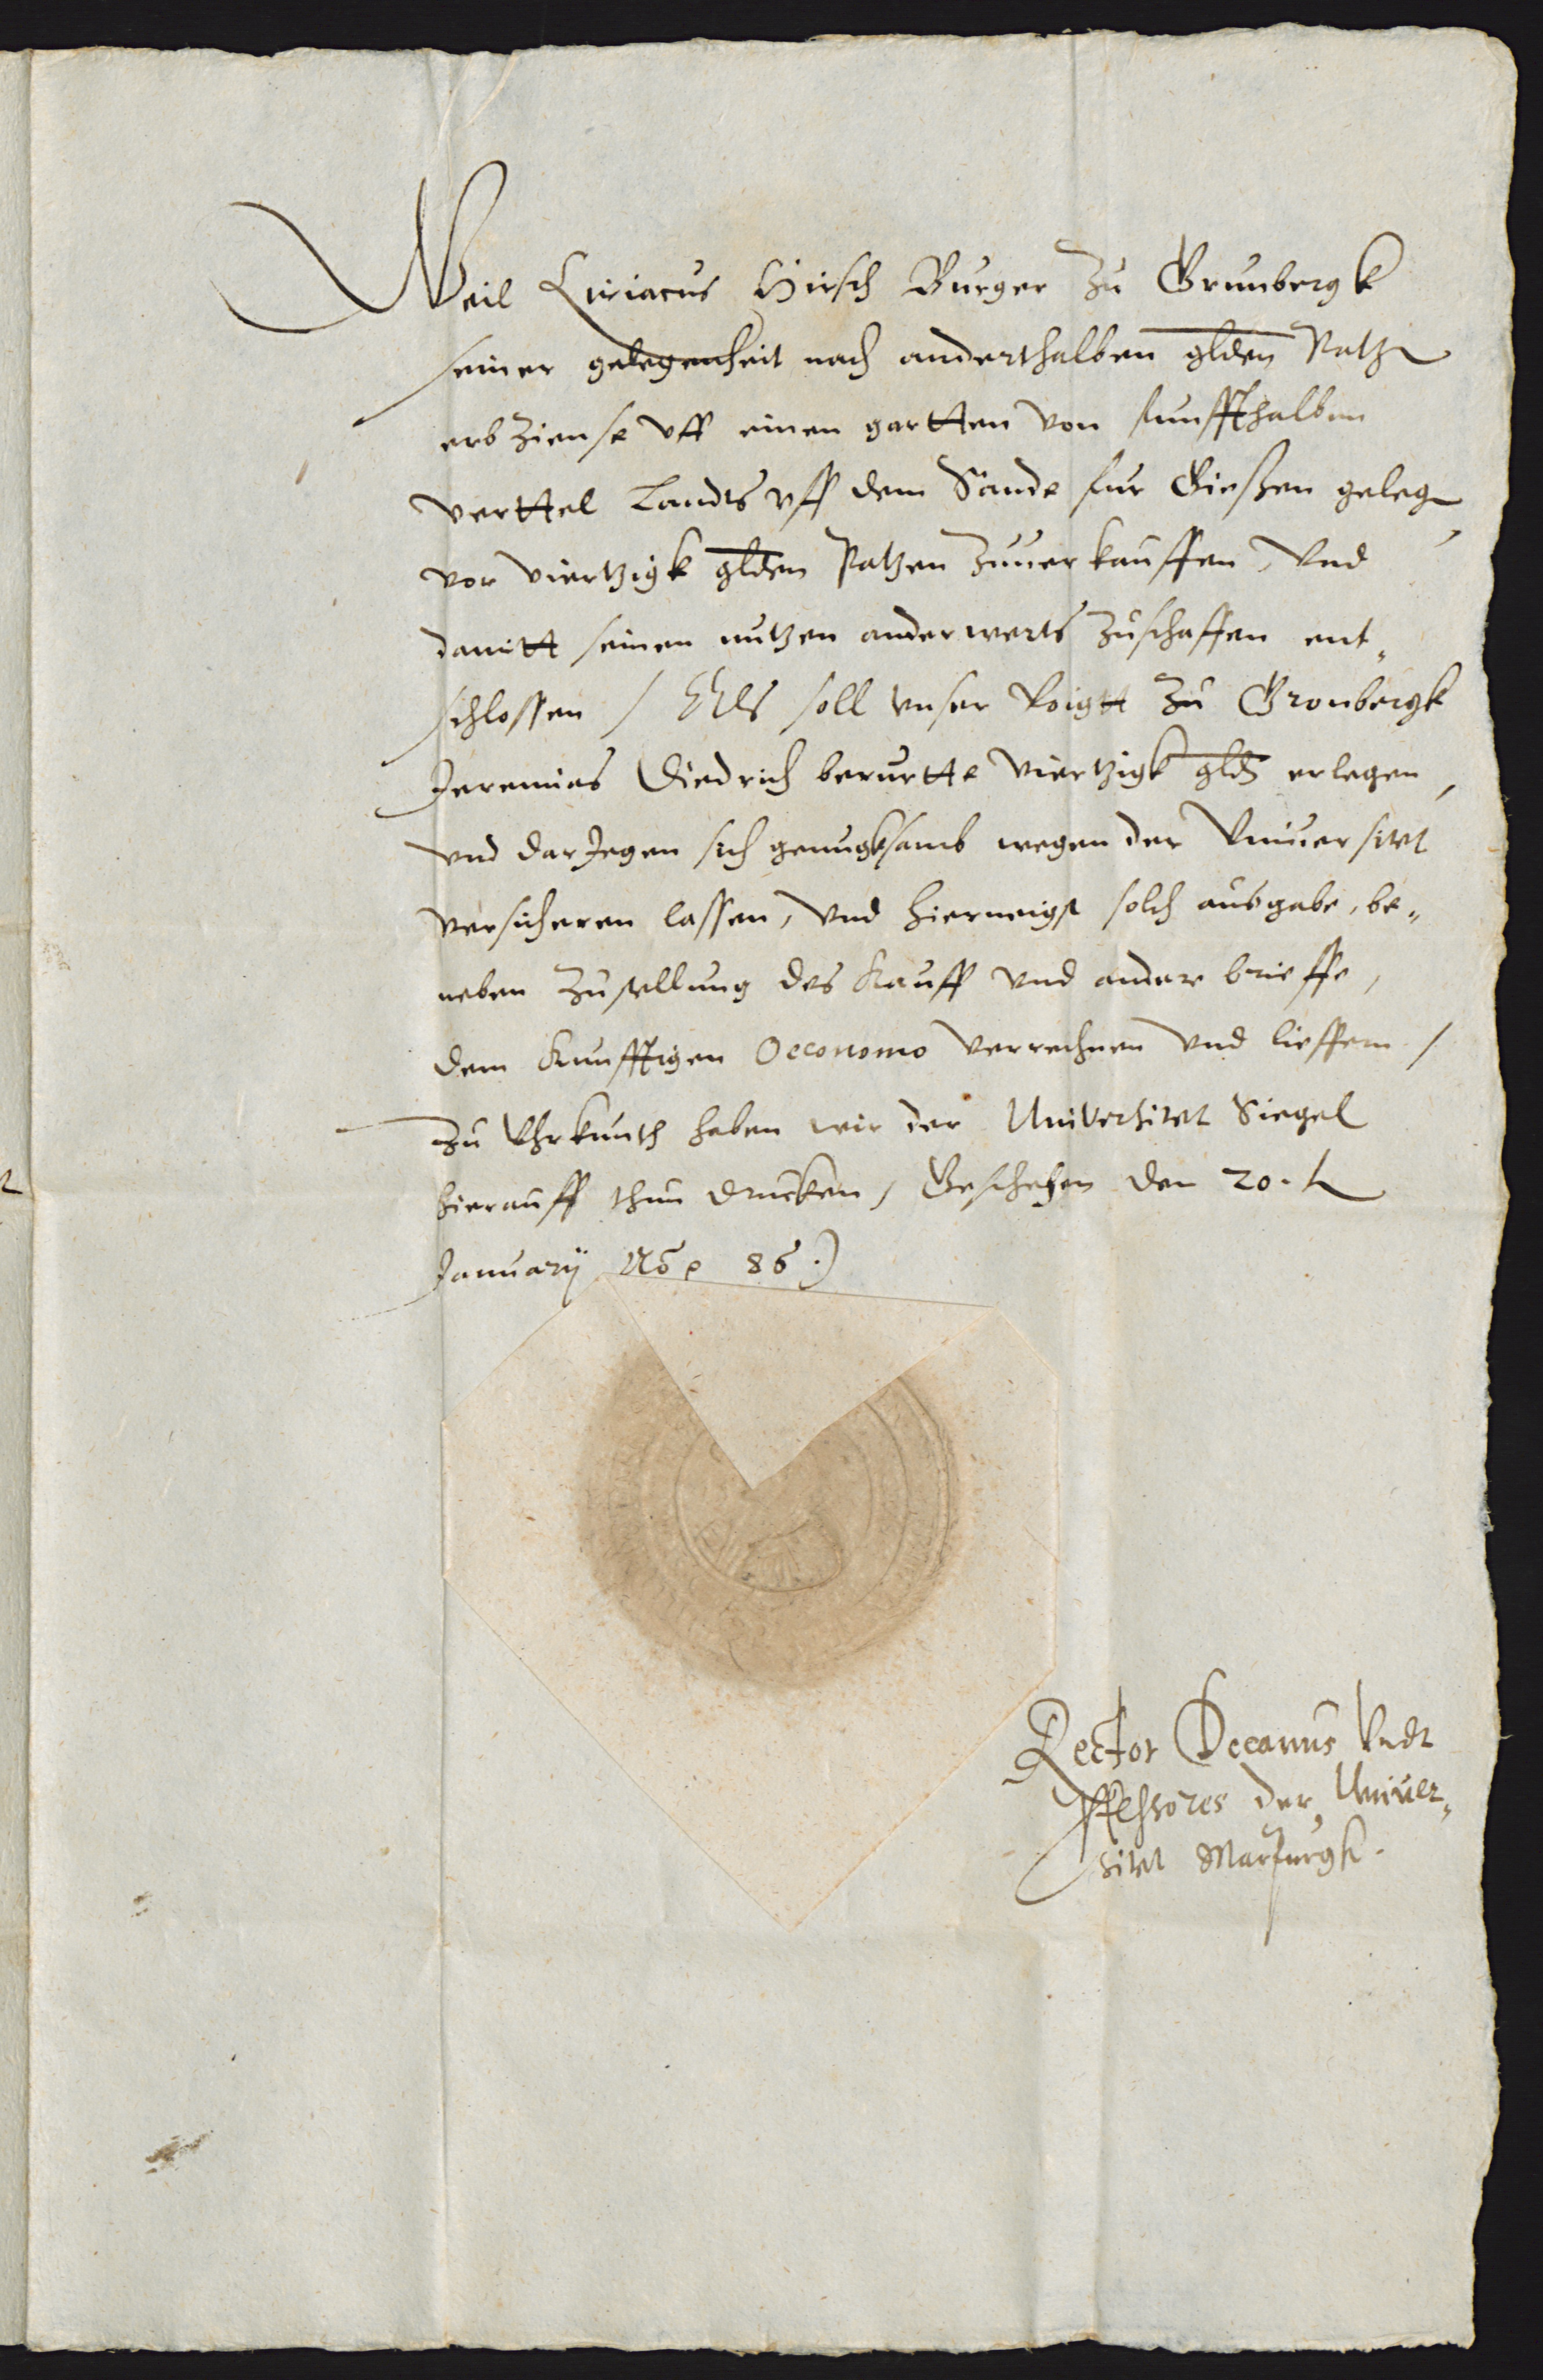 Weil Ciriacus Hirsch Burger zu Grunbergk
seiner gelegenheit nach anderthalben glden Patz
erb Zienße vff einen gartten von funffthalben
verttel Landts vff dem Sande fur Gießen geleg
vor viertzigk glden Patzen zuuerkauffen, Vnd
damitt seinen nutzen anderwerts zuschaffen ent„
schlossen / Als soll vnser Voigtt zu Gronbergk
Jeremias Diedrich berurtte viertzigk gld erlegen,
vnd darJegen sich genugksamb wegen der Vniuersitet
versicheren lassen, Vnd hierneigst solch ausgabe, be„
neben zustellung des Kauff vnd ander brieffe,
dem Kunfftigen Oeconomo verrechnen vnd lieffern /
Zu Vhrkunth haben wir der Universitet Siegel
hierauff thun drucken, Geschehen den 20. t
January Aõ ꝛ 86 .)
Rector Decanus Vndt
Professores der Univer„
sitet Marpurgk.